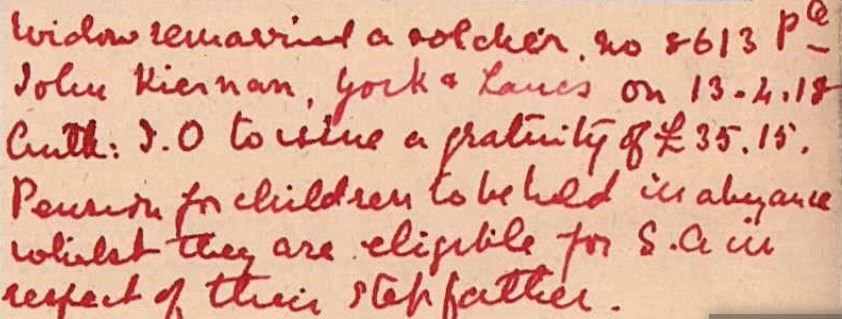 Widow remarried a soldier. No 8613 Pte
John Kiernan, York & Lancs on 13.4.18
Auth: I.O to issue a gratuity of £35.15.
Pension for children to be held in abeyance
whilst they are eligible for S.A in
respect of their stepfather.